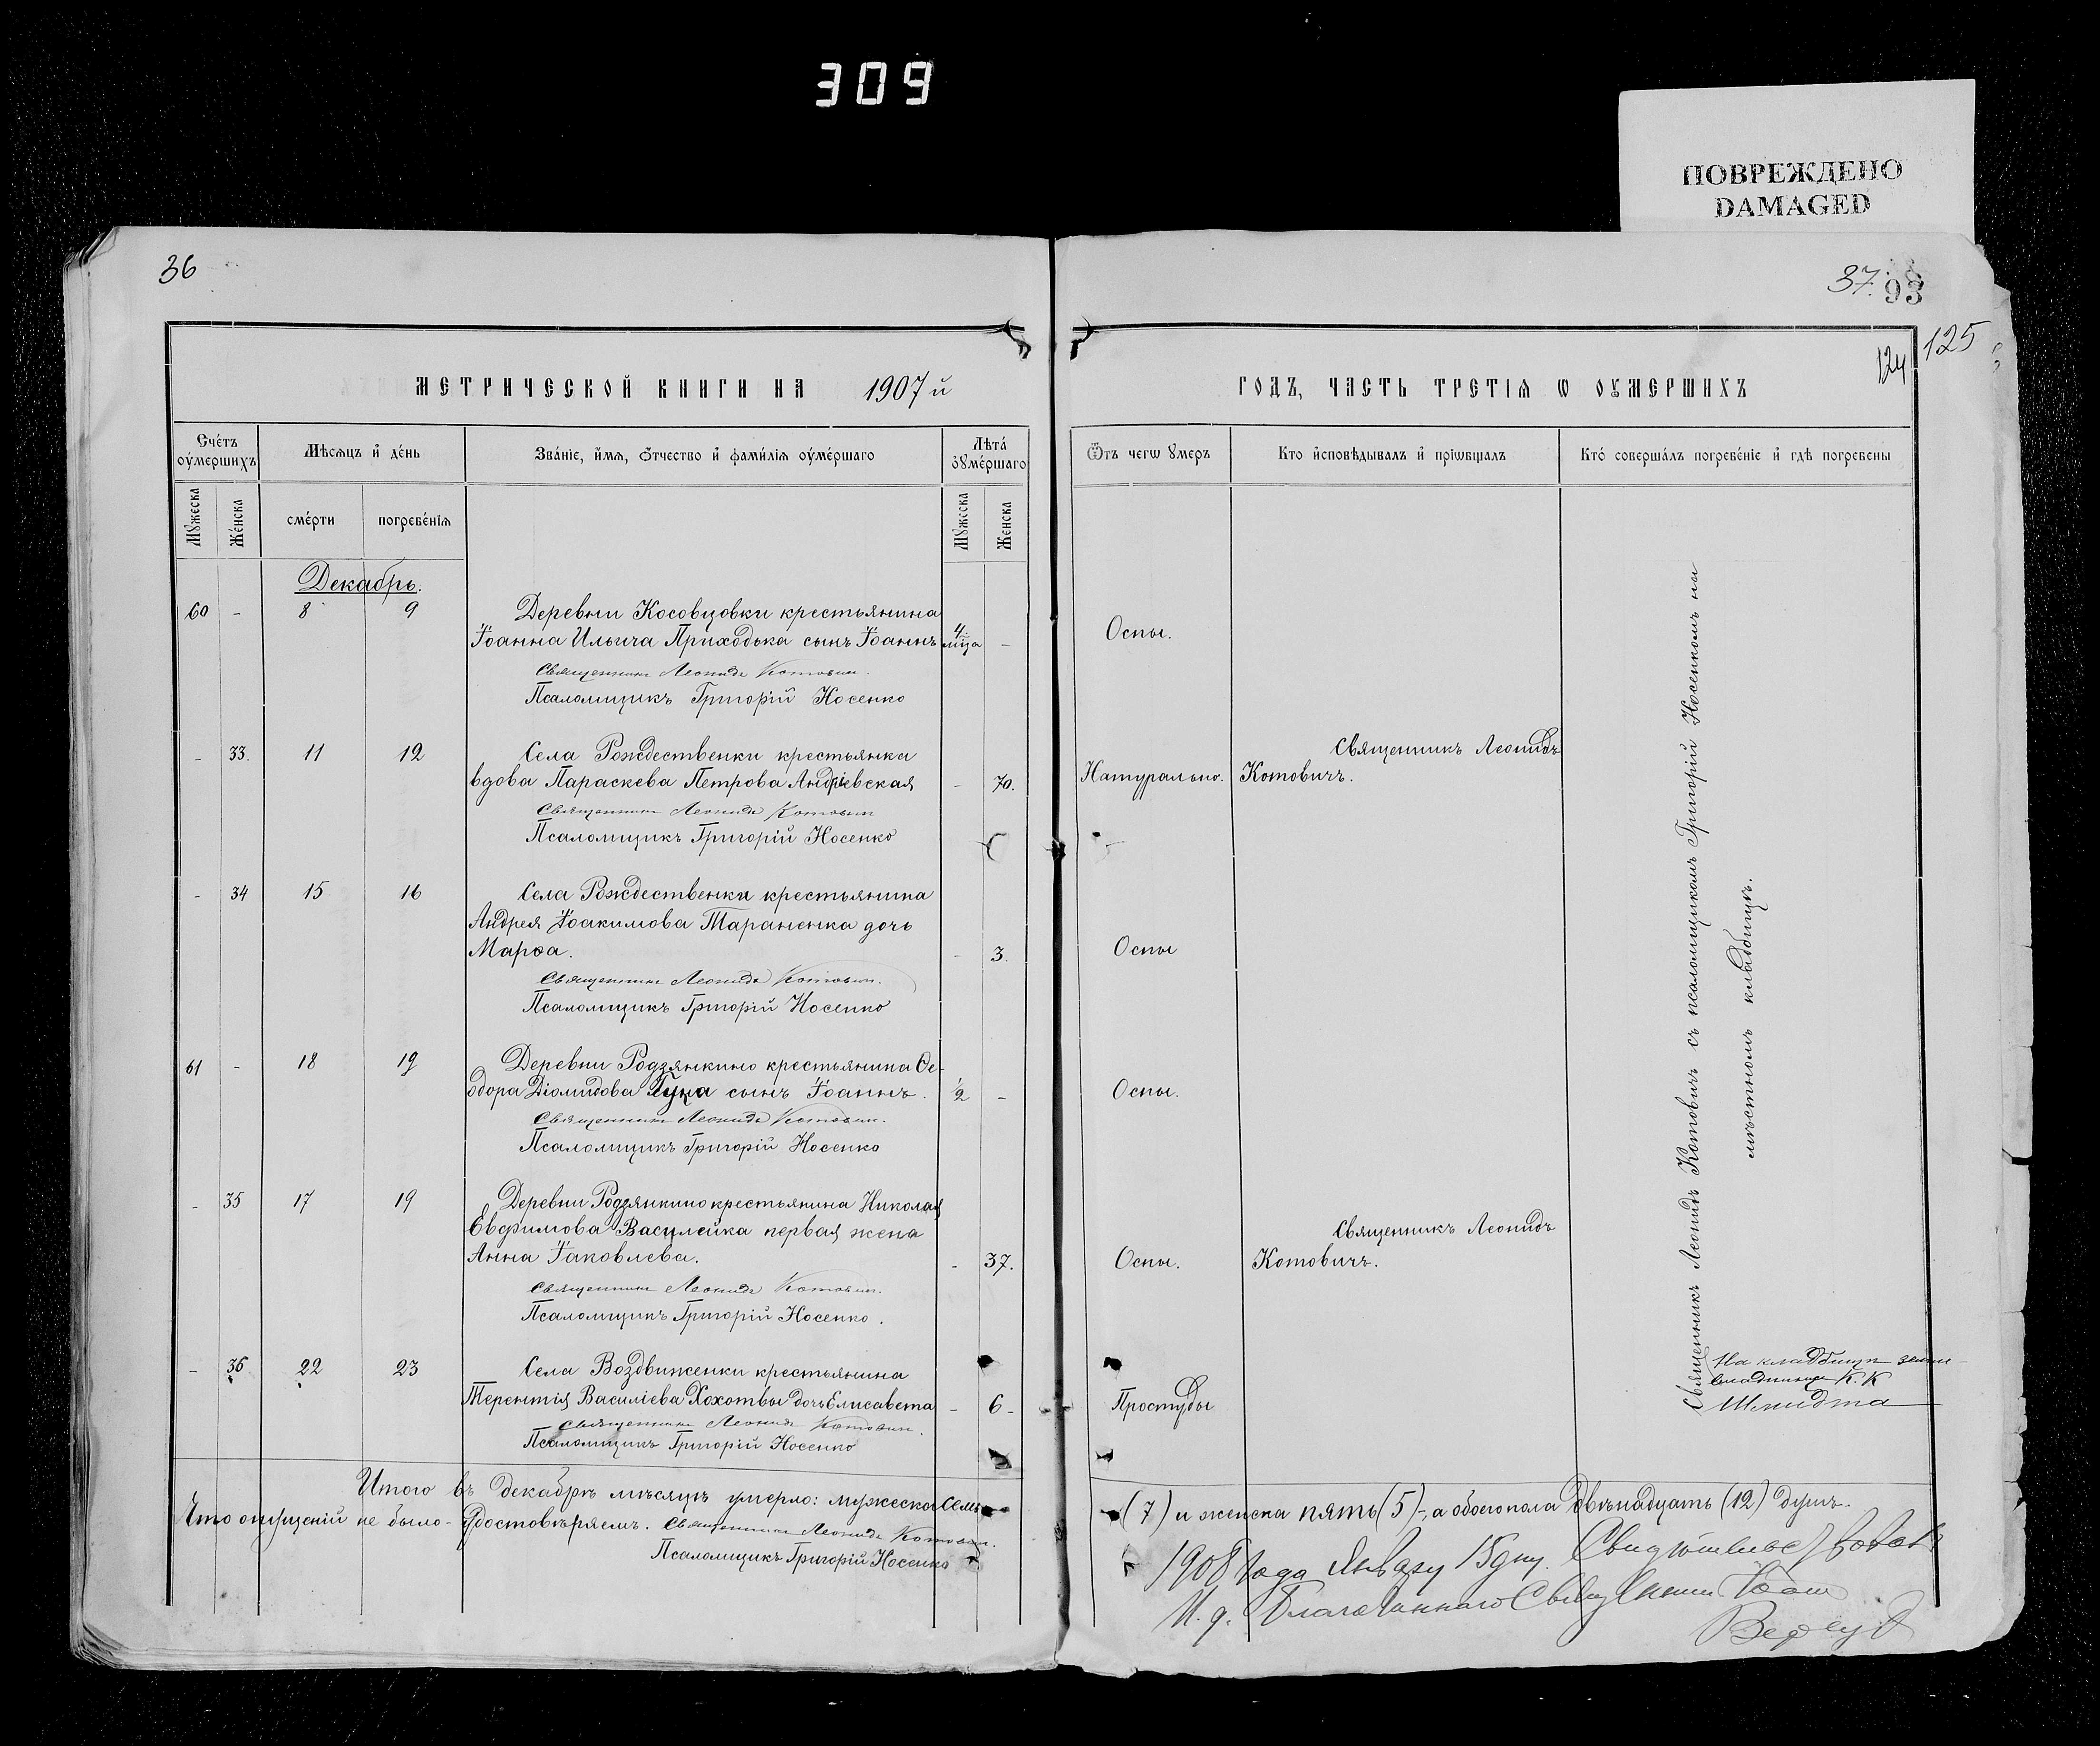 309
ПОВРЕЖДЕНО
DAMAGED
36
37.
93
125
124
МЕТРИЧЕСКОЙ КНИГИ НА 1907 й
ГОДЪ, ЧАСТЬ ТРЕТІѦ Ѡ ОУМЕРШИХЪ
Счéтъ оу҆мершихъ
Мѣсѧцъ и҆ дéнь
Звáніе, и҆́мѧ, ѻ҆́тчество и҆ фами́лїѧ оу҆ме́ршаго
Лѣтá оу҆ме́ршаго
Ѿтъ чегѡ ꙋмеръ
Кто и҆сповѣдывалъ и҆ прїѡбщалъ
Ктó совершáлъ погребéнїе и҆ гдѣ погребены
Мꙋжеска
Жéнска
смéрти
погребéнїѧ
Мꙋжеска
Женска
Декабрь.
60 - 8 9 Деревни Косовцовки крестьянина
Іоанна Ильича Приходька сынъ Іоаннъ 4 м͠ца - Оспы.
Священникъ Леонидъ Котовичъ.
Псаломщикъ Григорій Носенко
- 33. 11 12 Села Рождественки крестьянка
вдова Параскева Петрова Андріевская - 70. Натурально.
Священникъ Леонидъ
Котовичъ.
Священникъ Леонидъ Котовичъ
Псаломщикъ Григорій Носенко
- 34 15 16 Села Рождественки крестьянина
Андрея Іоакимова Тараненка дочь
Марѳа. - 3. Оспы
Священникъ Леонидъ Котовичъ.
Псаломщикъ Григорій Носенко
61 - 18 19 Деревни Родзянкино крестьянина Ѳе-
одора Діомидова Гука сынъ Іоаннъ. ½ - Оспы.
Священникъ Леонидъ Котовичъ.
Псаломщикъ Григорій Носенко
- 35 17 19 Деревни Родзянкино крестьянина Николая
Евѳимова Василейка первая жена
Анна Іаковлева. - 37. Оспы.
Священникъ Леонидъ
Котовичъ.
Священникъ Леонидъ Котовичъ.
Псаломщикъ Григорій Носенко.
- 36 22 23 Села Воздвиженки крестьянина
Терентія Василіева Хохотвы дочь Елисавета - 6 - Простуды
Священникъ Леонидъ Котовичъ.
Псаломщикъ Григорій Носенко
Священникъ Леонидъ Котовичъ съ псаломщикомъ Григорій Носенкомъ на
мѣстномъ кладбищѣ.
На кладбищѣ земле-
владѣльца К. К
Шмидта
Итого въ декабрѣ мѣсяцѣ умерло: мужеска семь (7) и женска пять (5)-, а обоего пола двѣнадцать (12) душъ.
Что опущеній не было - удостовѣряемъ. Священникъ Леонидъ Котовичъ.
Псаломщикъ Григорій Носенко
1908 года Января 15 дня.
И. д. Благочиннаго Священникъ